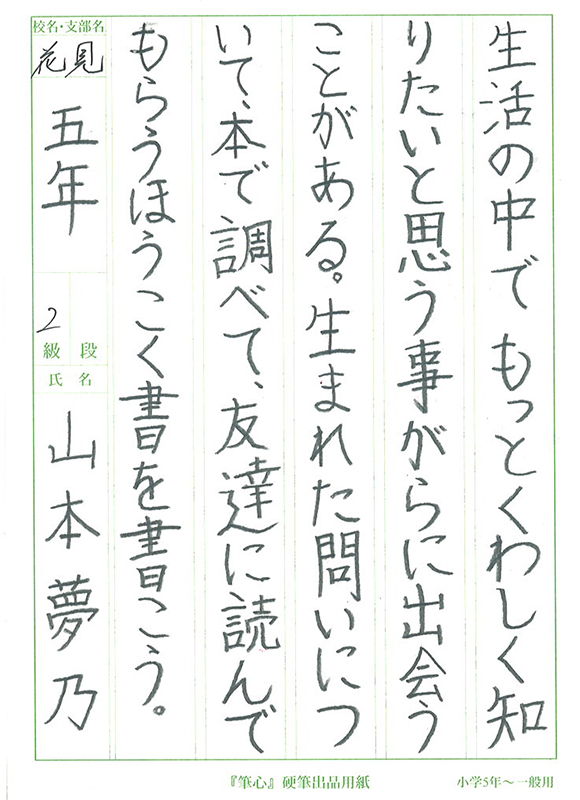 生活の中でもっとくわしく知
りたいと思う事がらに出会う
ことがある。生まれた問いにつ
いて、本で調べて、友達に読んで
もらうほうこく書を書こう。
校名・支部名
花見
五年
2
級 段
氏 名
山本夢乃
『筆心』硬筆出品用紙
小学5年〜一般用